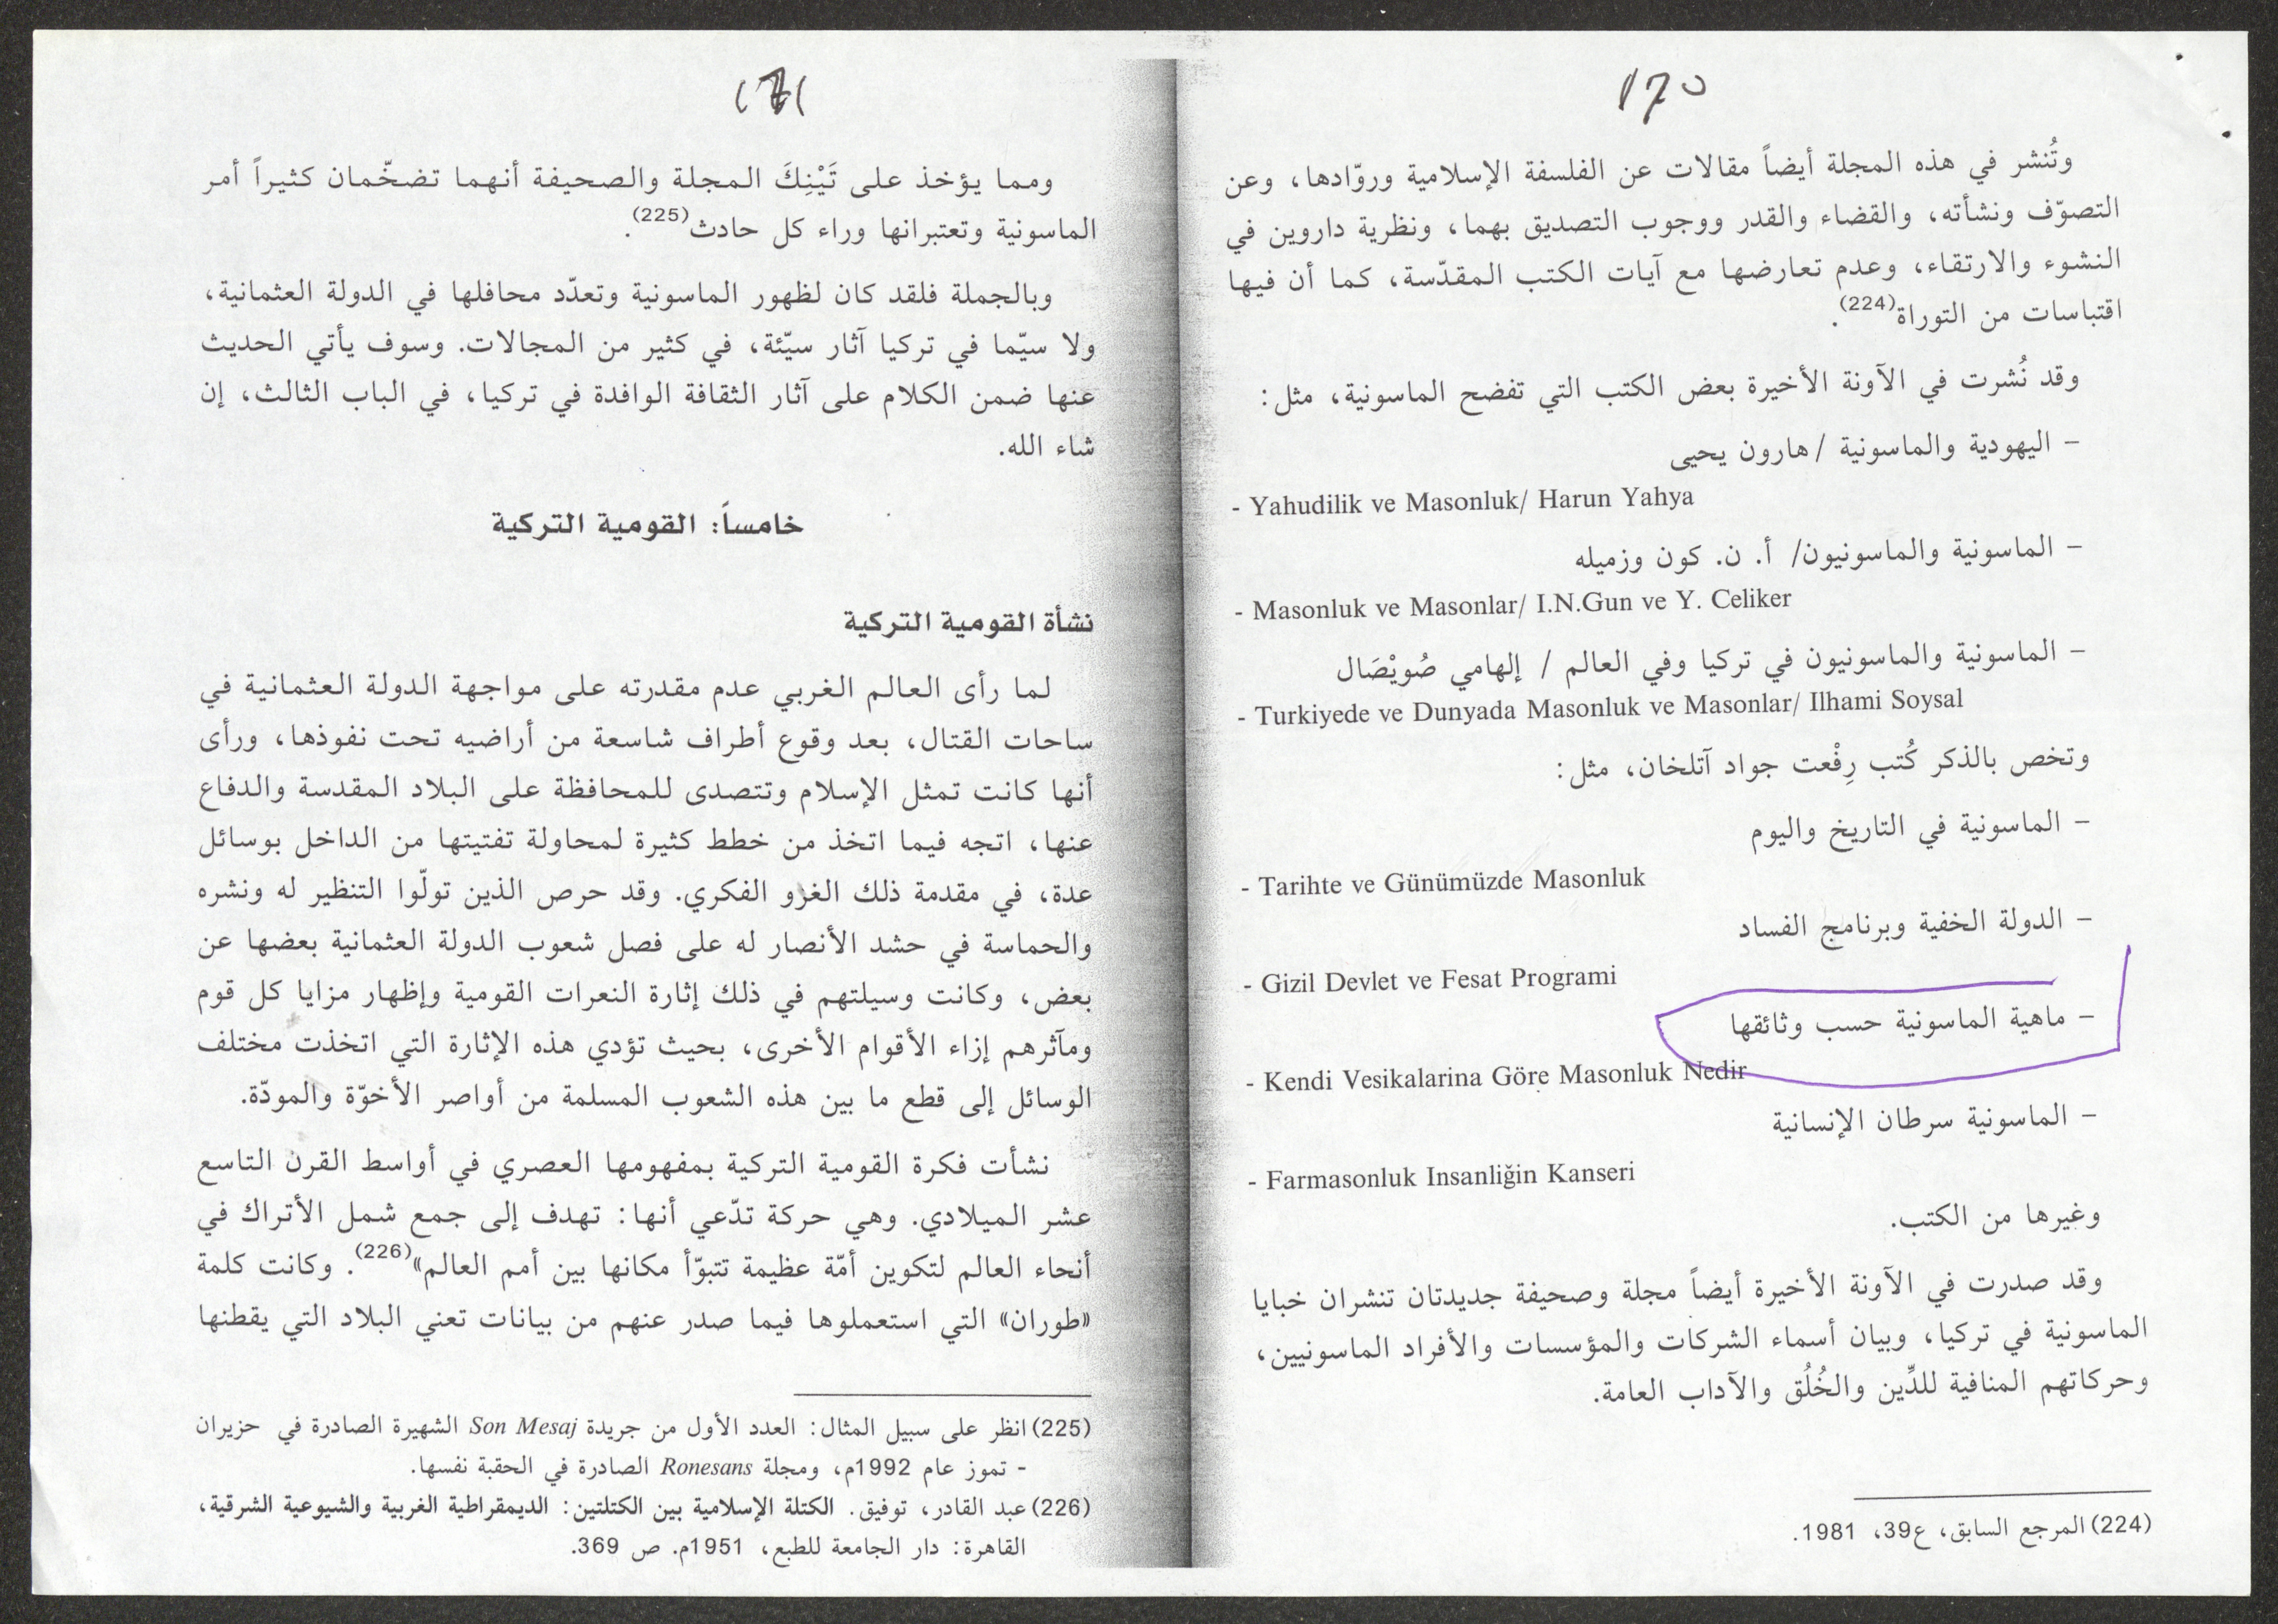 170
وتُنشر في هذه المجلة أيضاً مقالات عن الفلسفة الإسلامية وروّادها، وعن
التصوّف ونشأته، والقضاء والقدر ووجوب التصديق بهما، ونظرية داروين في
النشوء والارتقاء، وعدم تعارضها مع آيات الكتب المقدّسة، كما أن فيها
اقتباسات من التوراة(224).
وقد نُشرت في الآونة الأخيرة بعض الكتب التي تفضح الماسونية، مثل:
– اليهودية والماسونية / هارون يحيى
- Yahudilik ve Masonluk/ Harun Yahya
– الماسونية والماسونيون/ أ. ن. كون وزميله
- Masonluk ve Masonlar/ I.N.Gun ve Y. Celiker
– الماسونية والماسونيون في تركيا وفي العالم / إلهامي صُويْصَال
- Turkiyede ve Dunyada Masonluk ve Masonlar/ Ilhami Soysal
وتخص بالذكر كُتب رِفْعت جواد آتلخان، مثل:
– الماسونية في التاريخ واليوم
- Tarihte ve Günümüzde Masonluk
– الدولة الخفية وبرنامج الفساد
- Gizil Devlet ve Fesat Programi
– ماهية الماسونية حسب وثائقها
- Kendi Vesikalarina Göre Masonluk Nedir
– الماسونية سرطان الإنسانية
- Farmasonluk Insanliğin Kanseri
وغيرها من الكتب.
وقد صدرت في الآونة الأخيرة أيضاً مجلة وصحيفة جديدتان تنشران خبايا
الماسونية في تركيا، وبيان أسماء الشركات والمؤسسات والأفراد الماسونيين،
وحركاتهم المنافية للدِّين والخُلُق والآداب العامة.
(224) المرجع السابق، ع39، 1981.
171
ومما يؤخذ على تَيْنِكَ المجلة والصحيفة أنهما تضخّمان كثيراً أمر
الماسونية وتعتبرانها وراء كل حادث(225).
وبالجملة فلقد كان لظهور الماسونية وتعدّد محافلها في الدولة العثمانية،
ولا سيّما في تركيا آثار سيّئة، في كثير من المجالات. وسوف يأتي الحديث
عنها ضمن الكلام على آثار الثقافة الوافدة في تركيا، في الباب الثالث، إن
شاء الله.
خامساً: القومية التركية
نشأة القومية التركية
لما رأى العالم الغربي عدم مقدرته على مواجهة الدولة العثمانية في
ساحات القتال، بعد وقوع أطراف شاسعة من أراضيه تحت نفوذها، ورأى
أنها كانت تمثل الإسلام وتتصدى للمحافظة على البلاد المقدسة والدفاع
عنها، اتجه فيما اتخذ من خطط كثيرة لمحاولة تفتيتها من الداخل بوسائل
عدة، في مقدمة ذلك الغزو الفكري. وقد حرص الذين تولّوا التنظير له ونشره
والحماسة في حشد الأنصار له على فصل شعوب الدولة العثمانية بعضها عن
بعض، وكانت وسيلتهم في ذلك إثارة النعرات القومية وإظهار مزايا كل قوم
ومآثرهم إزاء الأقوام الأخرى، بحيث تؤدي هذه الإثارة التي اتخذت مختلف
الوسائل إلى قطع ما بين هذه الشعوب المسلمة من أواصر الأخوّة والمودّة.
نشأت فكرة القومية التركية بمفهومها العصري في أواسط القرن التاسع
عشر الميلادي. وهي حركة تدّعي أنها: تهدف إلى جمع شمل الأتراك في
أنحاء العالم لتكوين أمّة عظيمة تتبوّأ مكانها بين أمم العالم»(226). وكانت كلمة
«طوران» التي استعملوها فيما صدر عنهم من بيانات تعني البلاد التي يقطنها
(225) انظر على سبيل المثال: العدد الأول من جريدة Son Mesaj الشهيرة الصادرة في حزيران
- تموز عام 1992م، ومجلة Ronesans الصادرة في الحقبة نفسها.
(226) عبد القادر، توفيق. الكتلة الإسلامية بين الكتلتين: الديمقراطية الغربية والشيوعية الشرقية،
القاهرة: دار الجامعة للطبع، 1951م. ص 369.